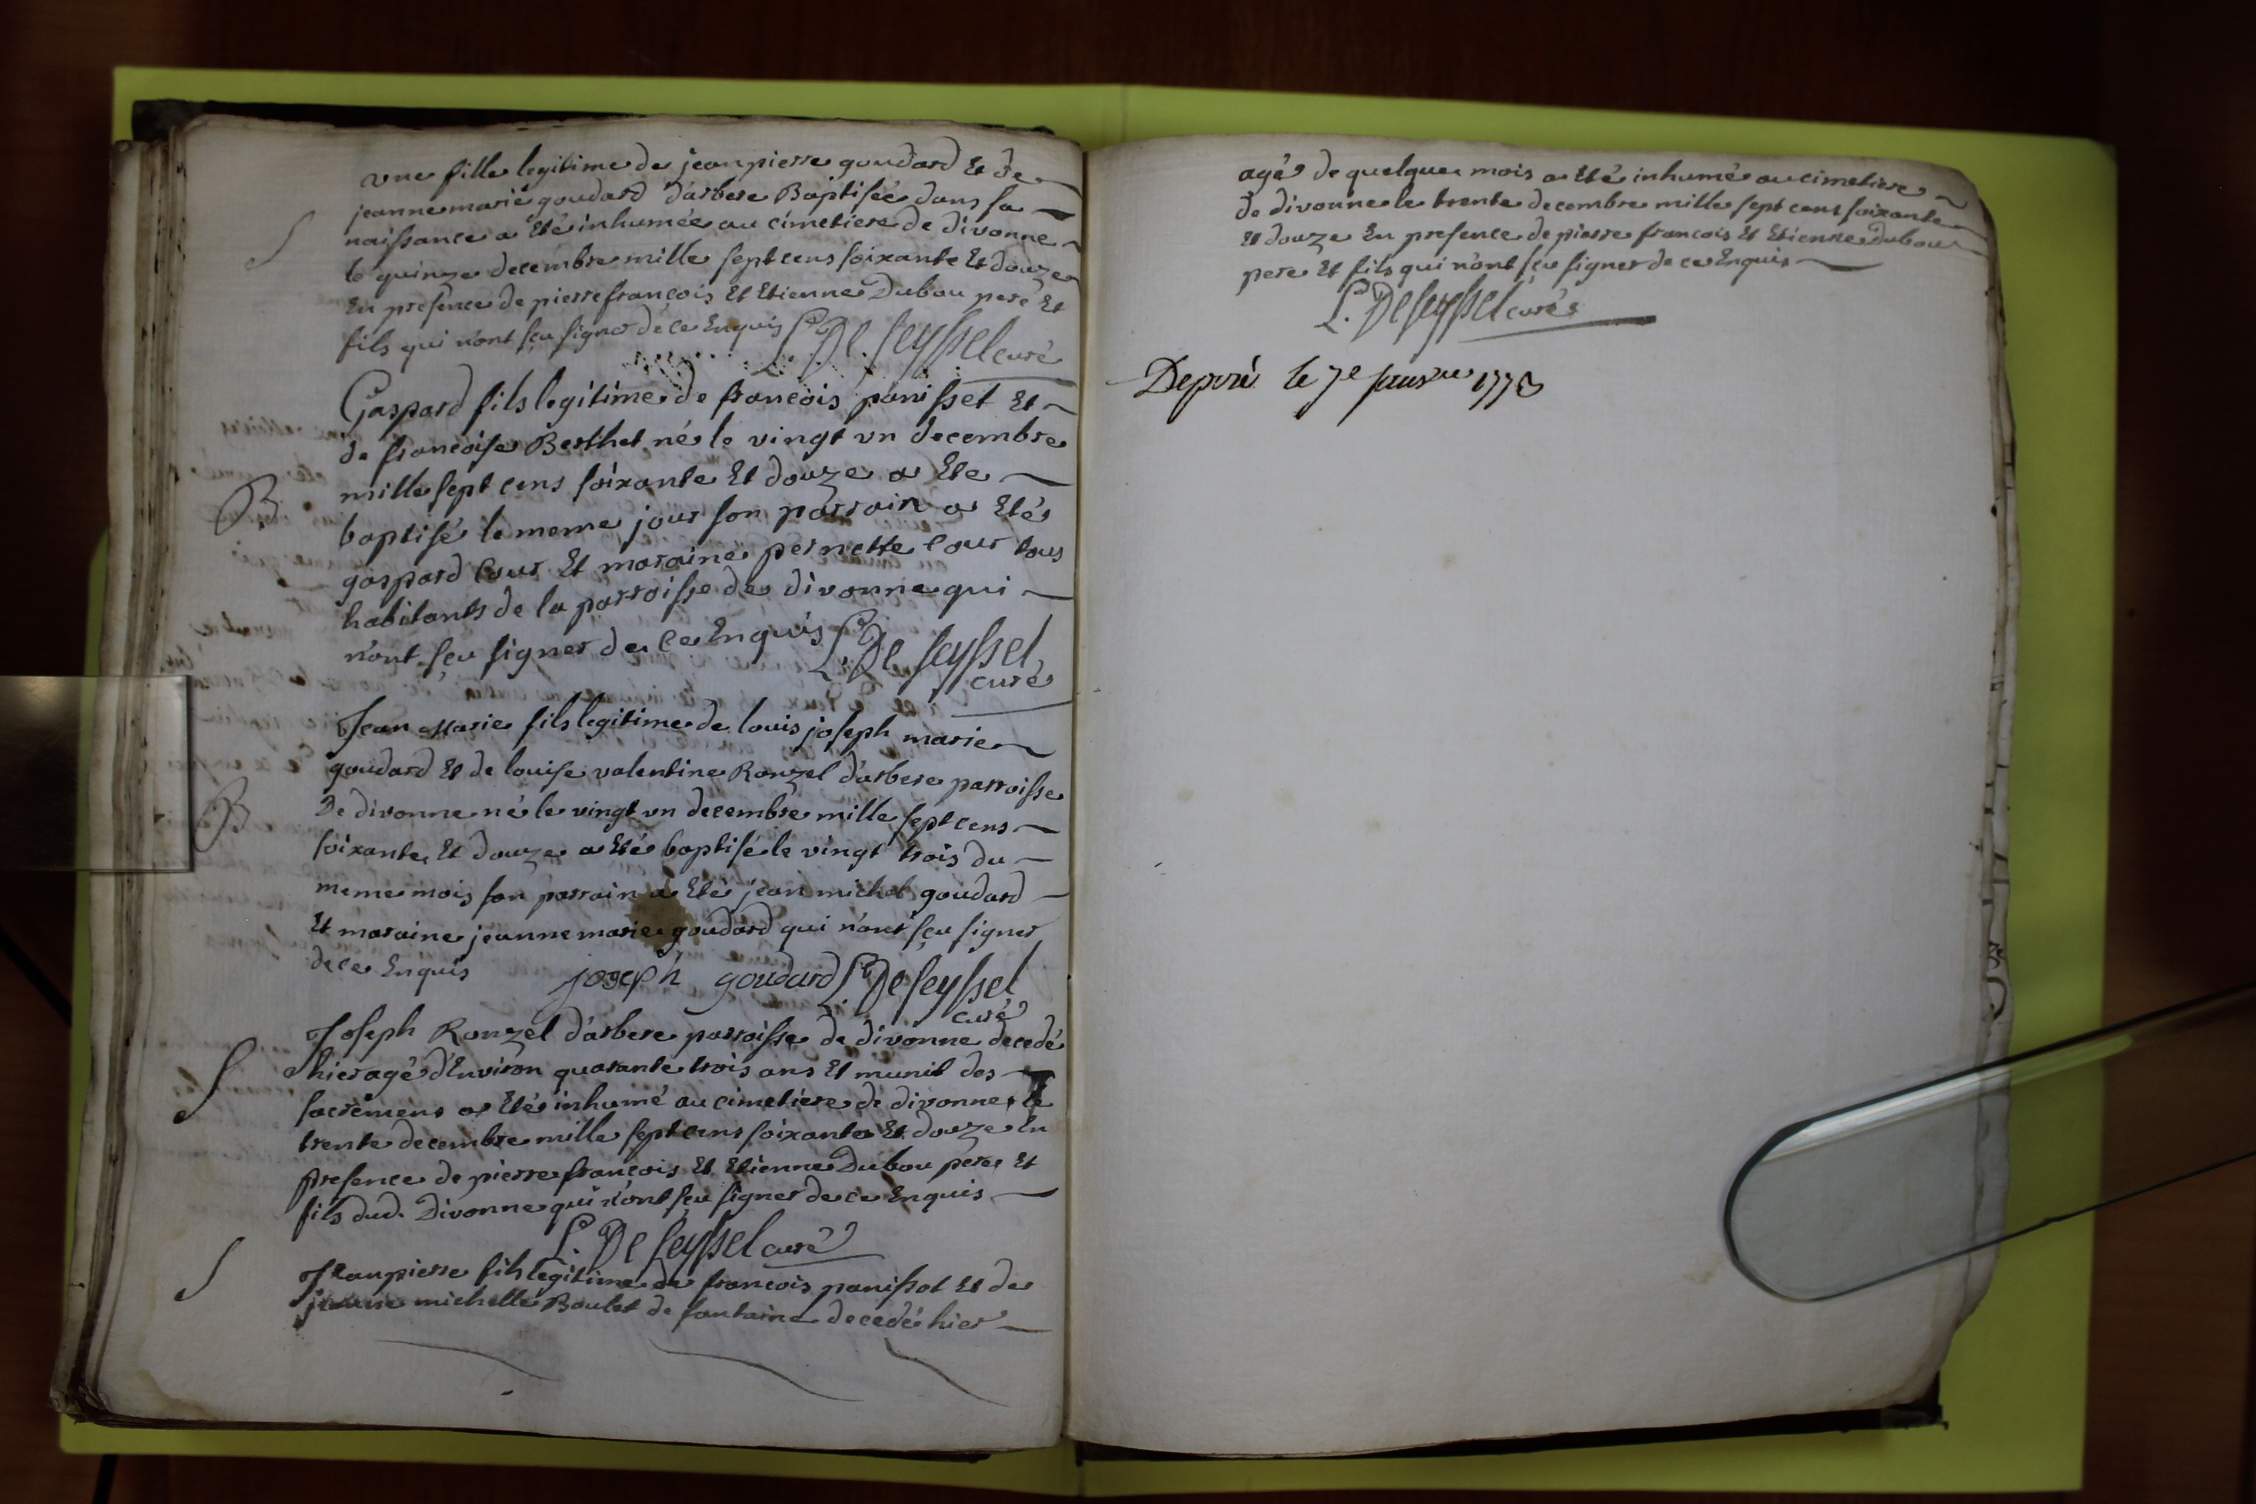 une fille legitime de jean pierre goudard Et de
jeanne marie goudard d'arbere Baptisée dans sa
S
naissance a Eté inhumée au cimetiere de divonne
le quinze decembre mille sept cens soixante Et douze
En presence de pierre francois Et Etienne Dubou pere Et
fils qui n'ont sçu signer de ce Enquis L. De Seyssel curé
Gaspard fils legitime de francois panisset Et
de francoise Berthet né le vingt un decembre
mille sept cens soixante Et douze a Ete
B
baptisé le meme jour son parrain a Eté
gaspard Cour Et maraine pernette Cour tous
habitants de la parroisse de divonne qui
n'ont sçu signer de ce Enquis L. De Seyssel
curé
Jean Marie fils legitime de louis joseph marie
goudard Et de louise valentine Ronzel d'arbere parroisse
B
De divonne né le vingt un decembre mille sept cens
soixante Et douze a Eté baptisé le vingt trois du
meme mois son parrain a Eté jean michel goudard
Et maraine jeanne marie goudard qui n'ont sçu signer
de ce Enquis joseph goudard L. De Seyssel
curé
Joseph Ronzel d'arbere parroisse de divonne decedé
S
hier agé d'Environ quarante trois ans Et munit des
sacremens a Eté inhumé au cimetiere de divonne le
trente decembre mille sept cens soixante Et douze En
presence de pierre francois Et Etienne Dubou pere Et
fils dud. Divonne qui n'ont sçu signer de ce Enquis
L. De Seyssel curé
S
Jean pierre fils legitime de francois panissot Et de
jeanne michelle Boulet de fontaine decedé hier
agé de quelque mois a Eté inhumé au cimetiere
de divonne le trente decembre mille sept cens soixante
Et douze En presence de pierre francois Et Etienne Dubou
pere Et fils qui n'ont sçu signer de ce Enquis
L. De Seyssel curé
le 7e 1773